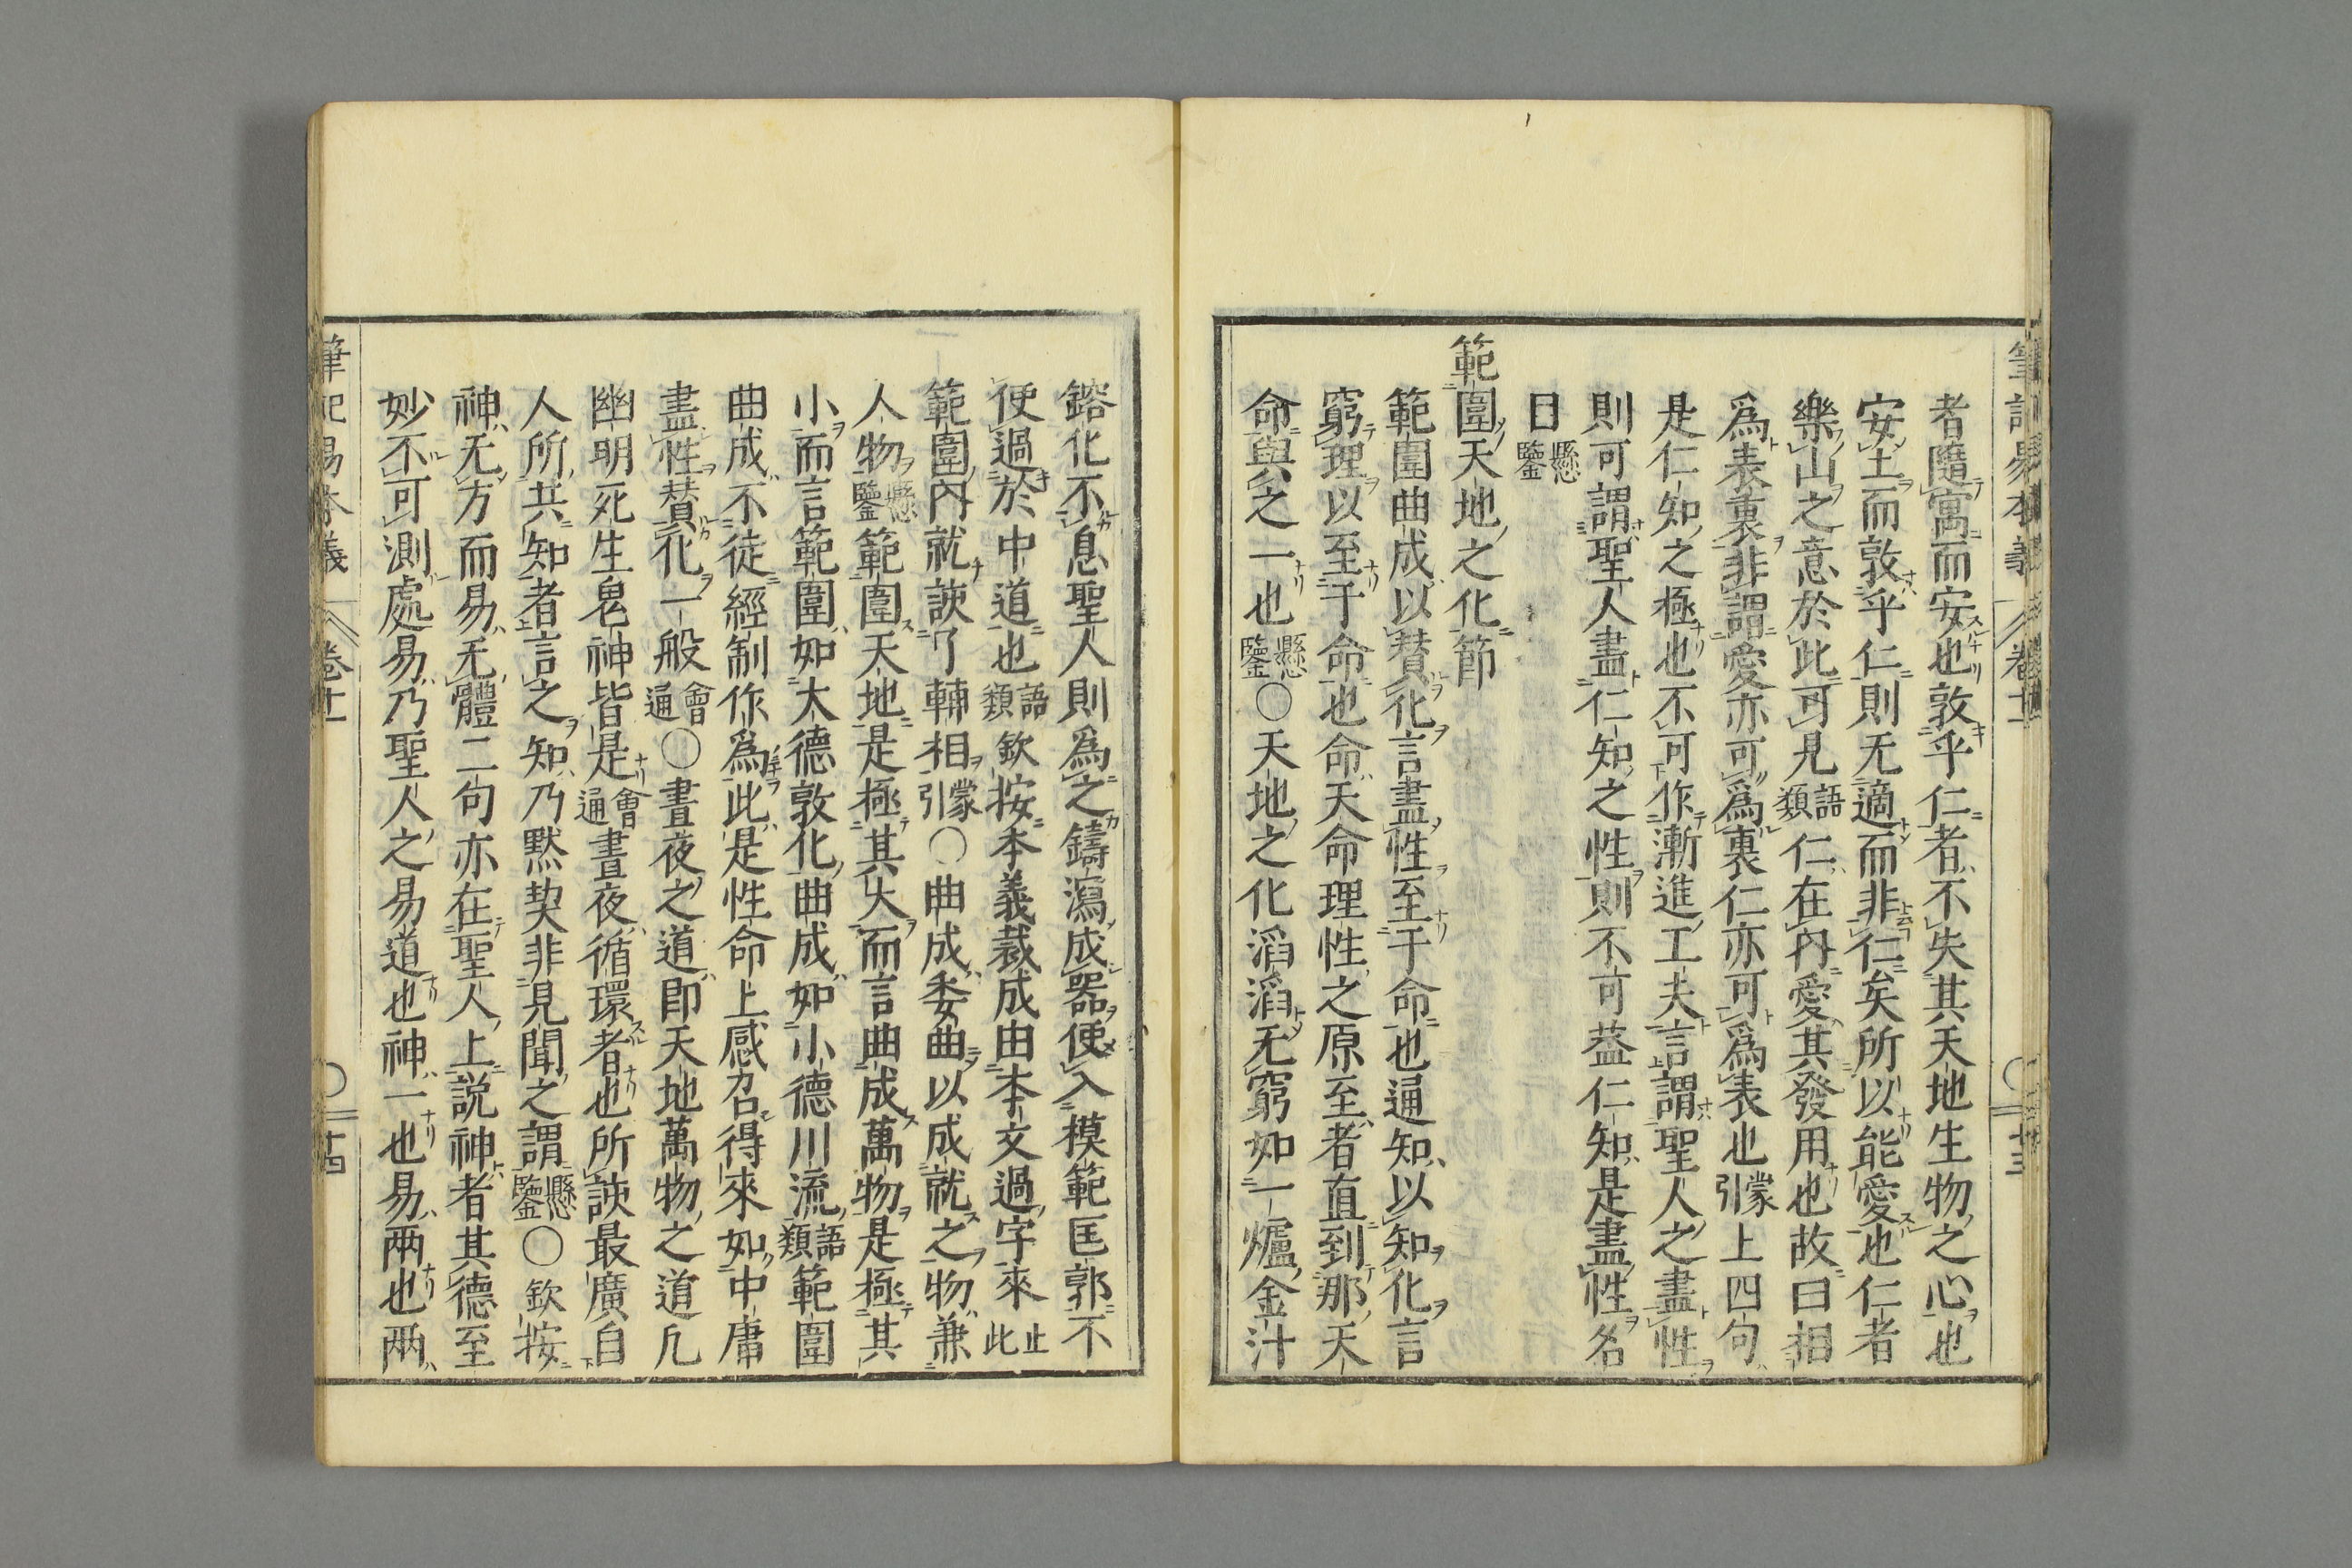 筆記易本義 卷十一 ○ 廿三
者隨寓而安也敦乎仁者不失其天地生物之心也
安土而敦乎仁則无適而非仁矣所以能愛也仁者
樂山之意於此可見語類仁在內愛其發用也故曰相
爲表裏非謂愛亦可爲裏仁亦可爲表也蒙引上四句
是仁知之極也不可作漸進工夫言謂聖人之盡性
則可謂聖人盡仁知之性則不可葢仁知是盡性名
目懸鑒
範圍天地之化節
範圍曲成以賛化言盡性至于命也通知以知化言
窮理以至于命也命天命理性之原至者直到那天
命與之一也懸鑒○天地之化滔滔无窮如一爐金汁
鎔化不息聖人則爲之鑄瀉成器使入模範匡郭不
使過於中道也語類欽按本義裁成由本文過字來止此
範圍內就該了輔相蒙引○曲成委曲以成就之物兼
人物懸鑒範圍天地是極其大而言曲成萬物是極其
小而言範圍如大德敦化曲成如小德川流語類範圍
曲成不徒經制作爲此是性命上感召得來如中庸
盡性賛化一般會通○晝夜之道即天地萬物之道凡
幽明死生鬼神皆是會通晝夜循環者也所該最廣自
人所共知者言之知乃黙契非見聞之謂懸鑒○欽按
神无方而易无體二句亦在聖人上説神者其德至
妙不可測處易乃聖人之易道也神一也易兩也兩
筆記易本義 卷十一 ○ 廿四